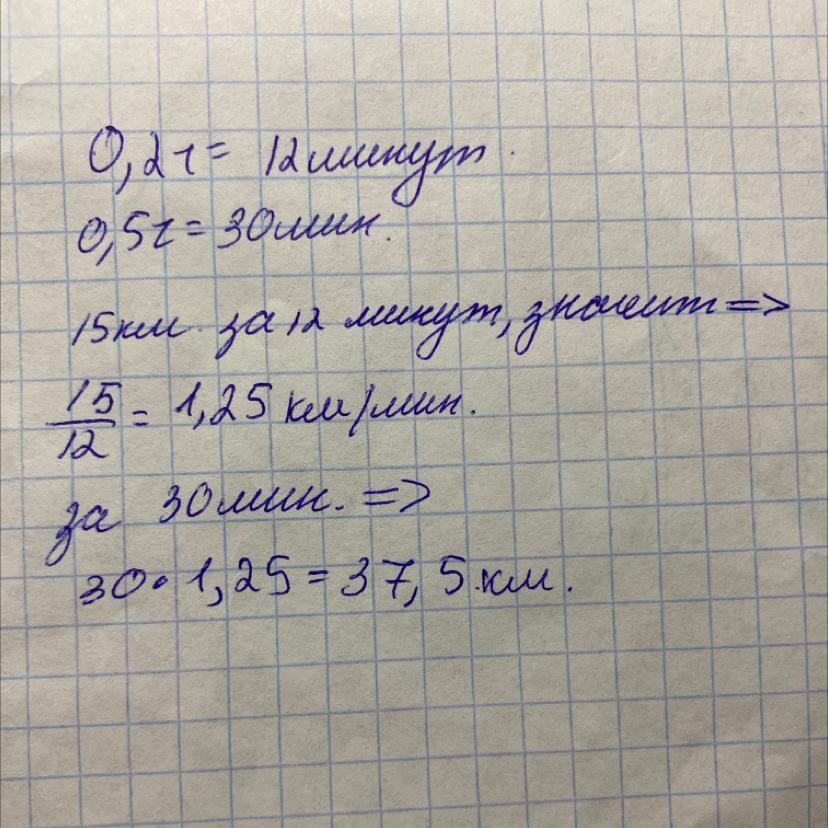 0,2ч = 12 минут.
0,5ч = 30 мин.
15 км. за 12 минут, значит =>
15/12 = 1,25 км/мин.
за 30 мин. =>
30 • 1,25 = 37,5 км.